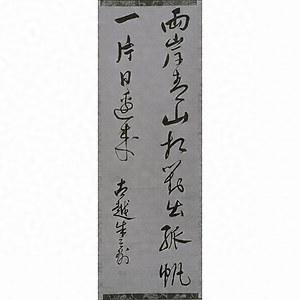 兩岸青山相對出孤帆
一片日邊來
古越朱